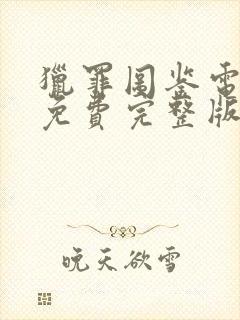 獵罪圖鉴電
免費完整版
晚天欲雪